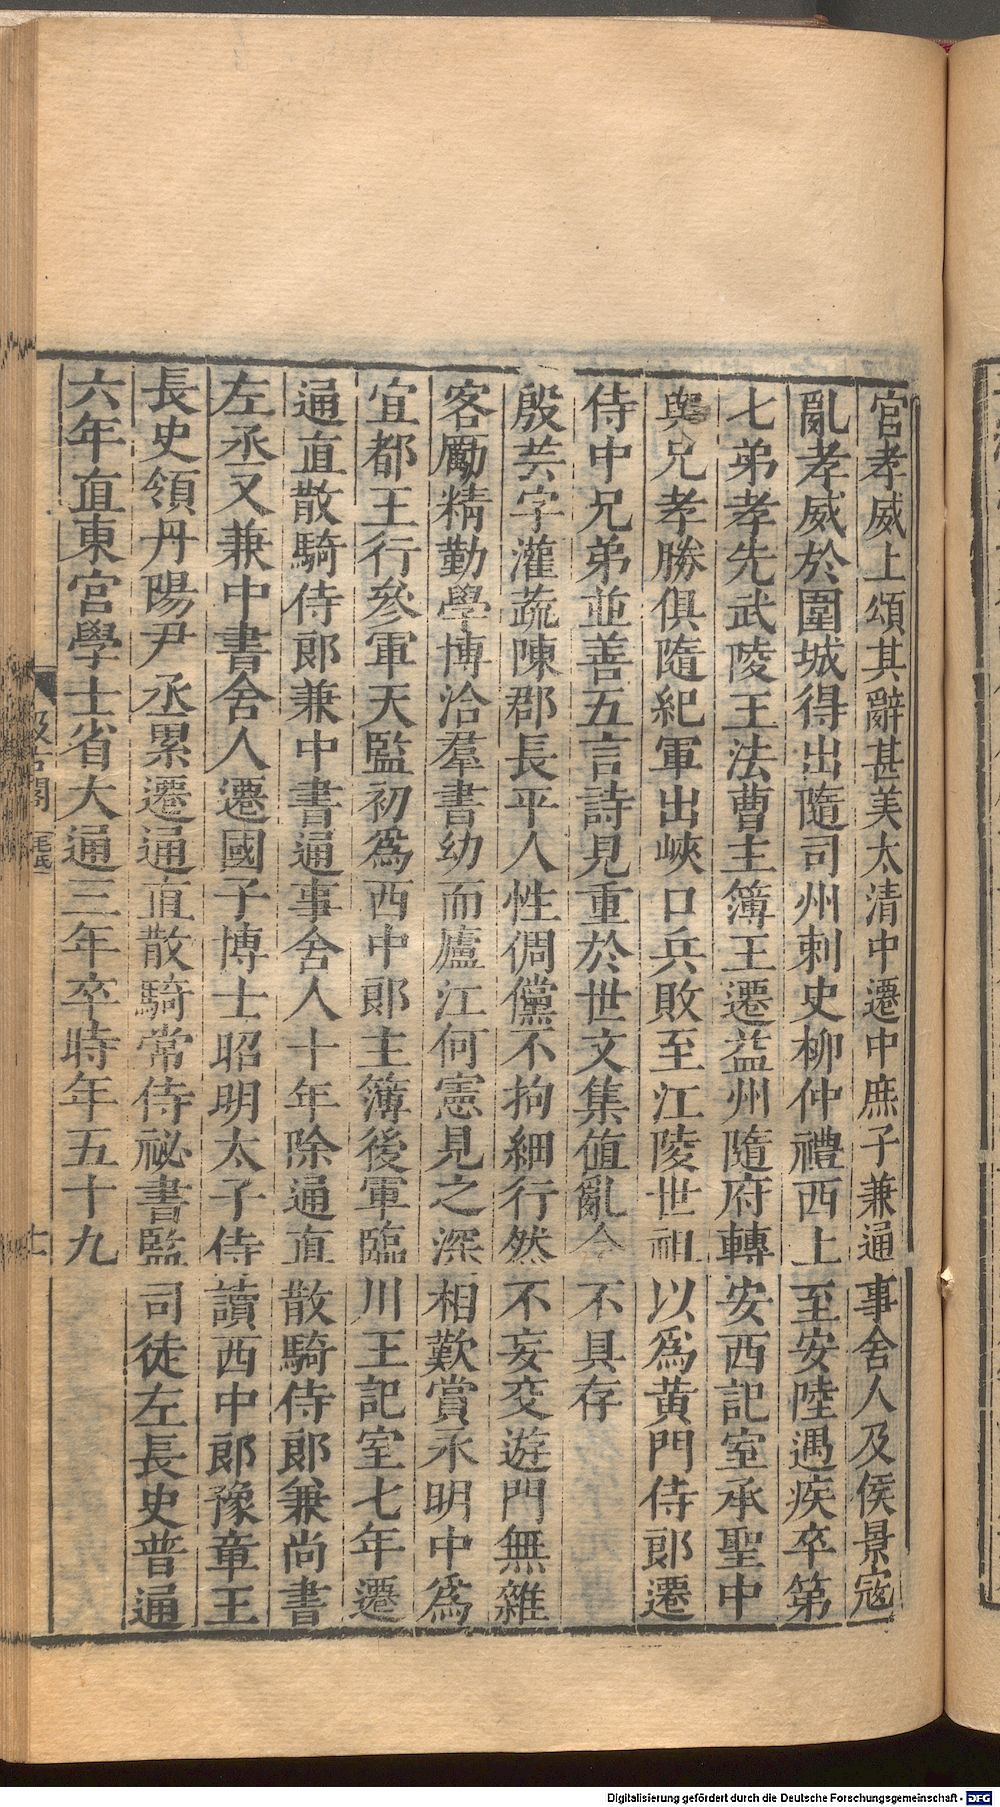 宮孝威上頌其辭甚美太清中遷中庶子兼通事舍人及侯景寇
亂孝威於圍城得出隨司州刺史柳仲禮西上至安陸遇疾卒第
七弟孝先武陵王法曹主簿王遷益州隨府轉安西記室承聖中
與兄孝勝俱隨紀軍出峽口兵敗至江陵世祖以爲黃門侍郎遷
侍中兄弟並善五言詩見重於世文集值亂今不具存
殷芸字灌蔬陳郡長平人性倜儻不拘細行然不妄交遊門無雜
客勵精勤學博洽羣書幼而廬江何憲見之深相歎賞永明中爲
宜都王行參軍天監初爲西中郎主簿後軍臨川王記室七年遷
通直散騎侍郎兼中書通事舍人十年除通直散騎侍郎兼尚書
左丞又兼中書舍人遷國子博士昭明太子侍讀西中郎豫章王
長史領丹陽尹丞累遷通直散騎常侍祕書監司徒左長史普通
六年直東宮學士省大通三年卒時年五十九
汲古閣
毛氏
Digitalisierung gefördert durch die Deutsche Forschungsgemeinschaft - DFG